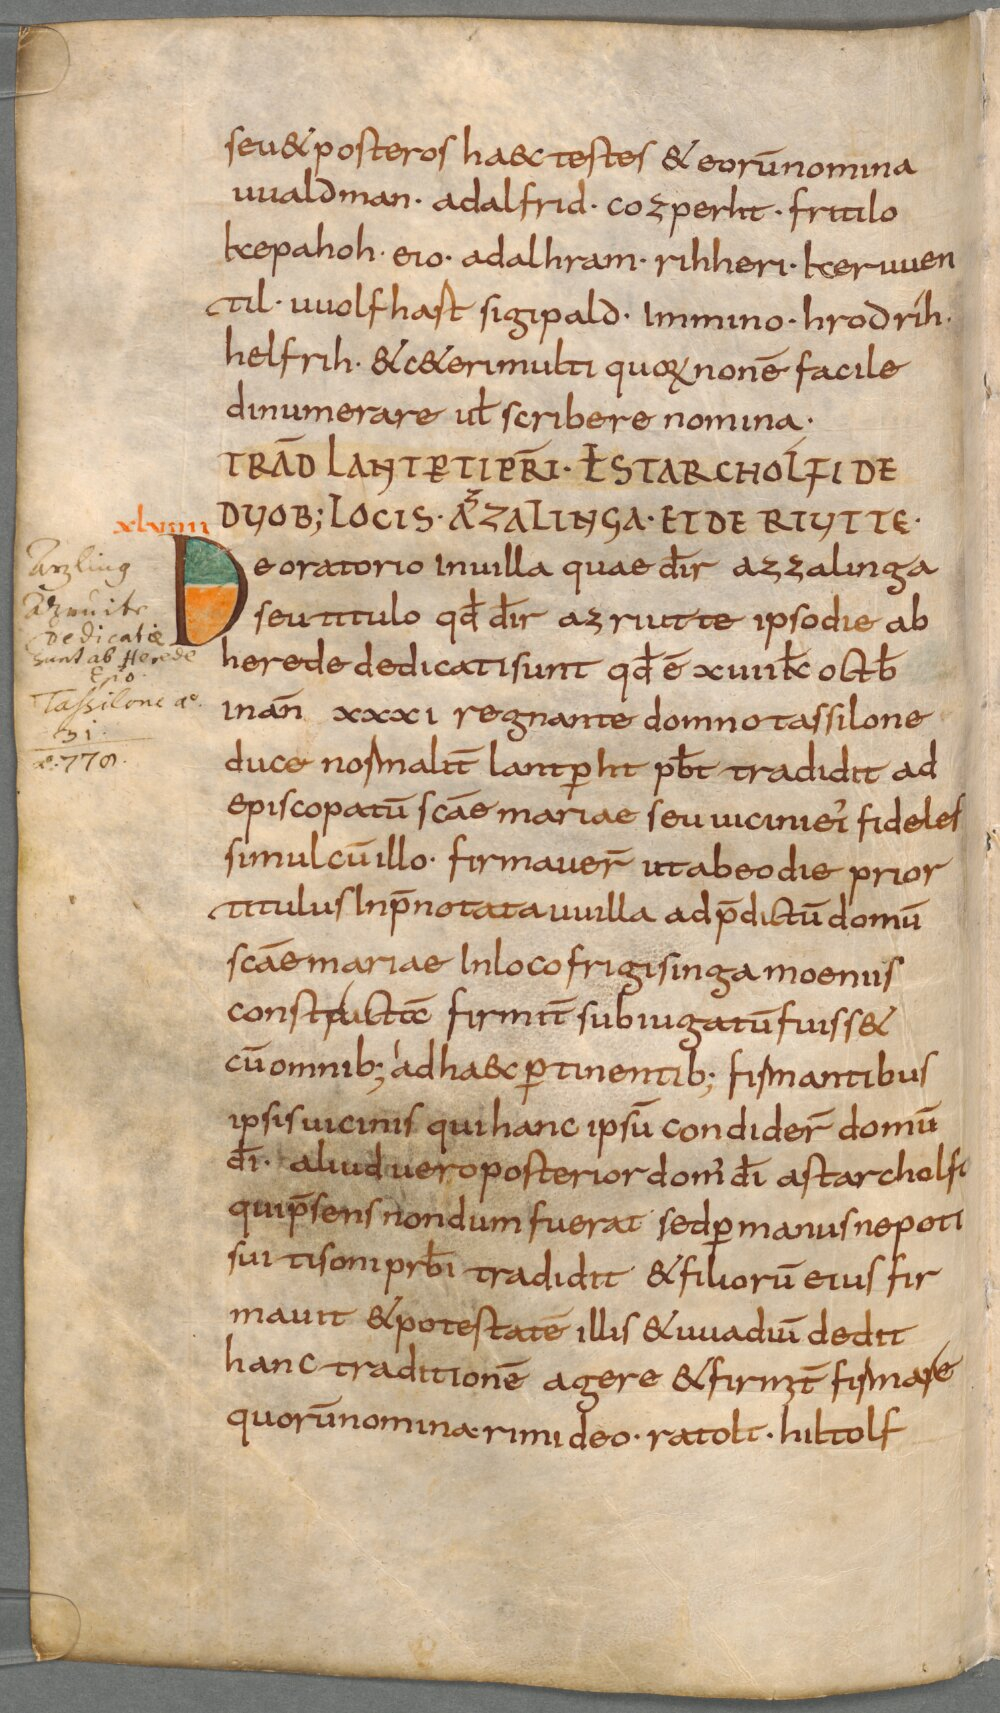 seu & posteros haec testes & eorū nomina
uualdman· adalfrid· cozperht· fritilo
kepahoh· eio· adalhram· rihheri· keruuen
til· uuolfhast sigipald· Immino· hrodrih·
helfrih· & c&eri multi quoꝝ non ē facile
dinumerare uł scribere nomina·
TRAD̄ LANTPTI PRI· ET STARCHOLFI DE
DUOB; LOCIS· AZZALINGA· ET DE RIUTTE·
xlviiii
De oratorio In uilla quae dr̄ azzalinga
seu titulo qđ dr̄ az riutte ipso die ab
herede dedicati sunt qđ ē xiiii k octb̄
in an̄ xxxi regnante domno tassilone
duce nos malit̄ lantꝑht pbt̄ tradidit ad
episcopatū scāe mariae seu uicini ei fideles
simul cū illo· firmauer̄ ut ab eo die prior
titulus In p̄notata uuilla ad p̄dictū domū
scāe mariae In loco frigisinga moeniis
constructā firmit̄ subiugatū fuiss&
cū omnib; ad haec ꝑtinentib; firmantibus
ipsis uicinis qui hanc ipsū condider̄ domū
dī· aliud uero posterior dom' dī a starcholfi
qui p̄sens nondum fuerat sed ꝑ manus nepoti
sui tisoni prb̄i tradidit & filiorū eius fir
mauit & potestatē illis & uuadiū dedit
hanc traditionē agere & firmit̄ firmare
quorū nomina· rimideo· ratolt· hiltolf
Arzling
Azruite
dedicatae
sunt ab Herede
Ep̄o.
Tassilone ao.
31.
ao. 779.